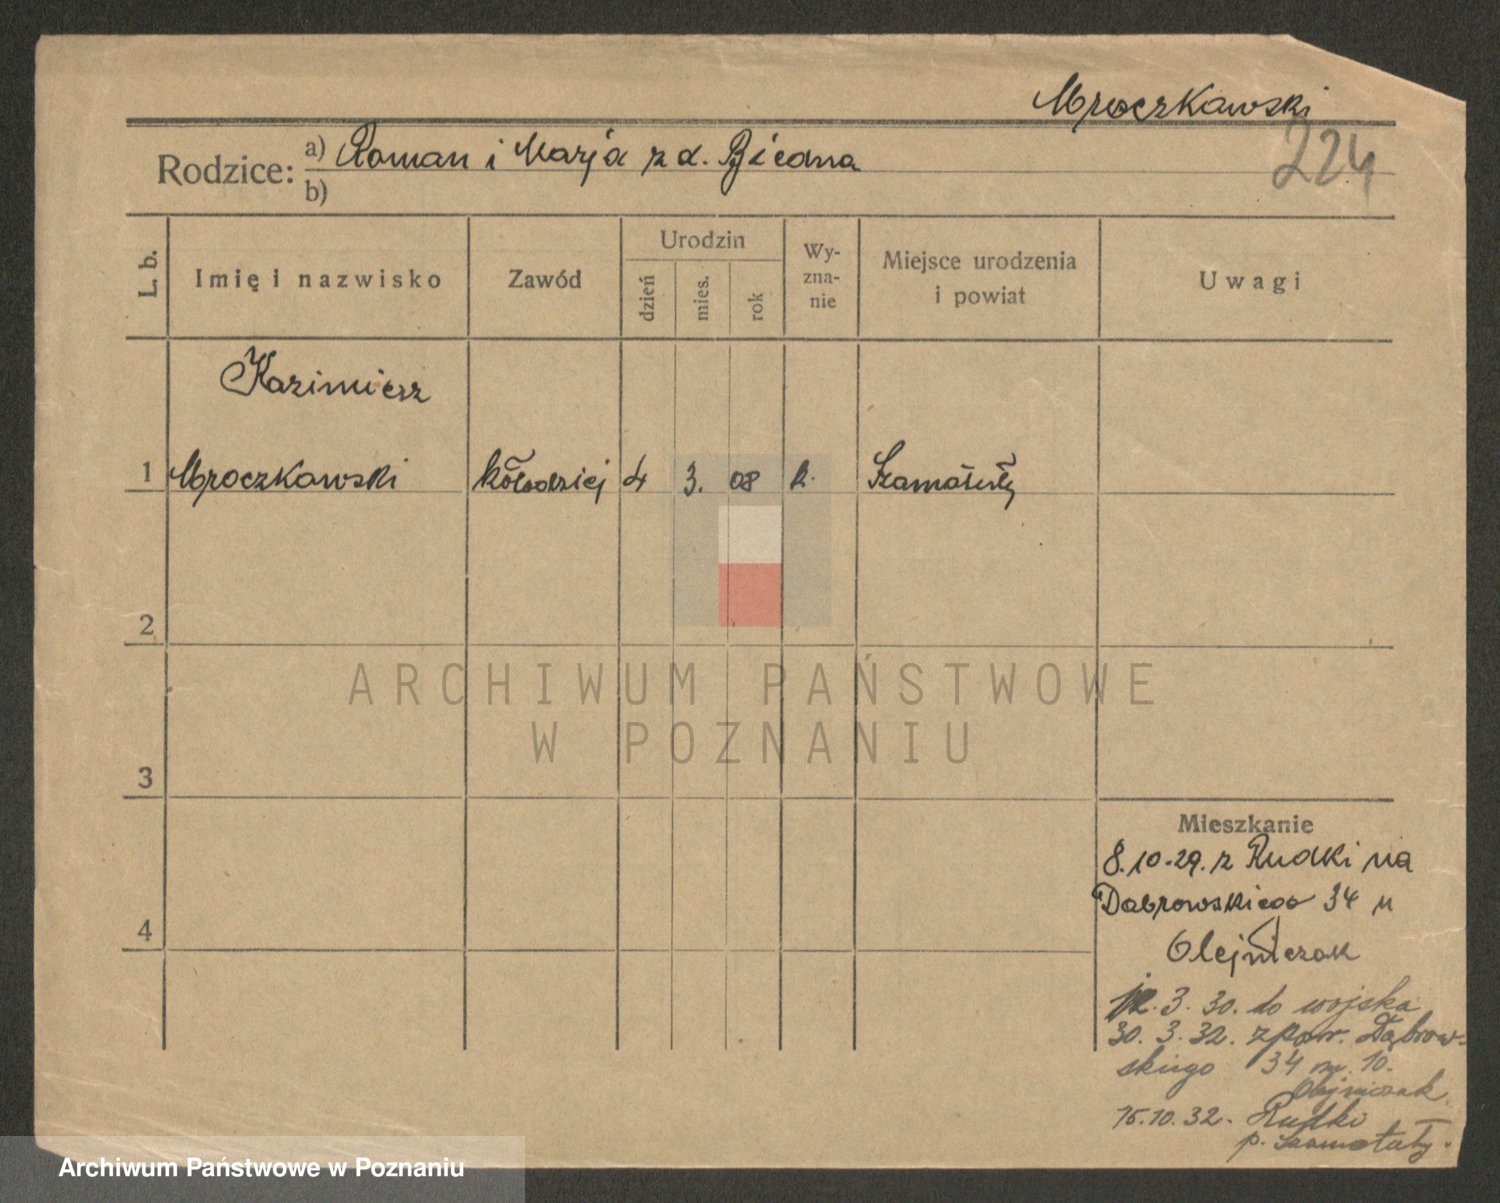 Mroczkowski
224
Rodzice: a) Roman i Marja z d. Biedna
b)
L. b.
Imię i nazwisko
Zawód
Urodzin
dzień
mies.
rok
Wy-
zna-
nie
Miejsce urodzenia
i powiat
Uwagi
Kazimierz
1 Mroczkowski kołodziej 4 3. 08 k. Szamotuły
2
3
4
Mieszkanie
8.10.29. z Rudki na
Dąbrowskiego 34 u
Olejniczak
12.3.30. do wojska
30.3.32. z pow. Dąbrow-
skiego 34 m. 10.
Olejniczak
15.10.32. Rudki
p. Szamotuły.
ARCHIWUM PAŃSTWOWE
W POZNANIU
Archiwum Państwowe w Poznaniu